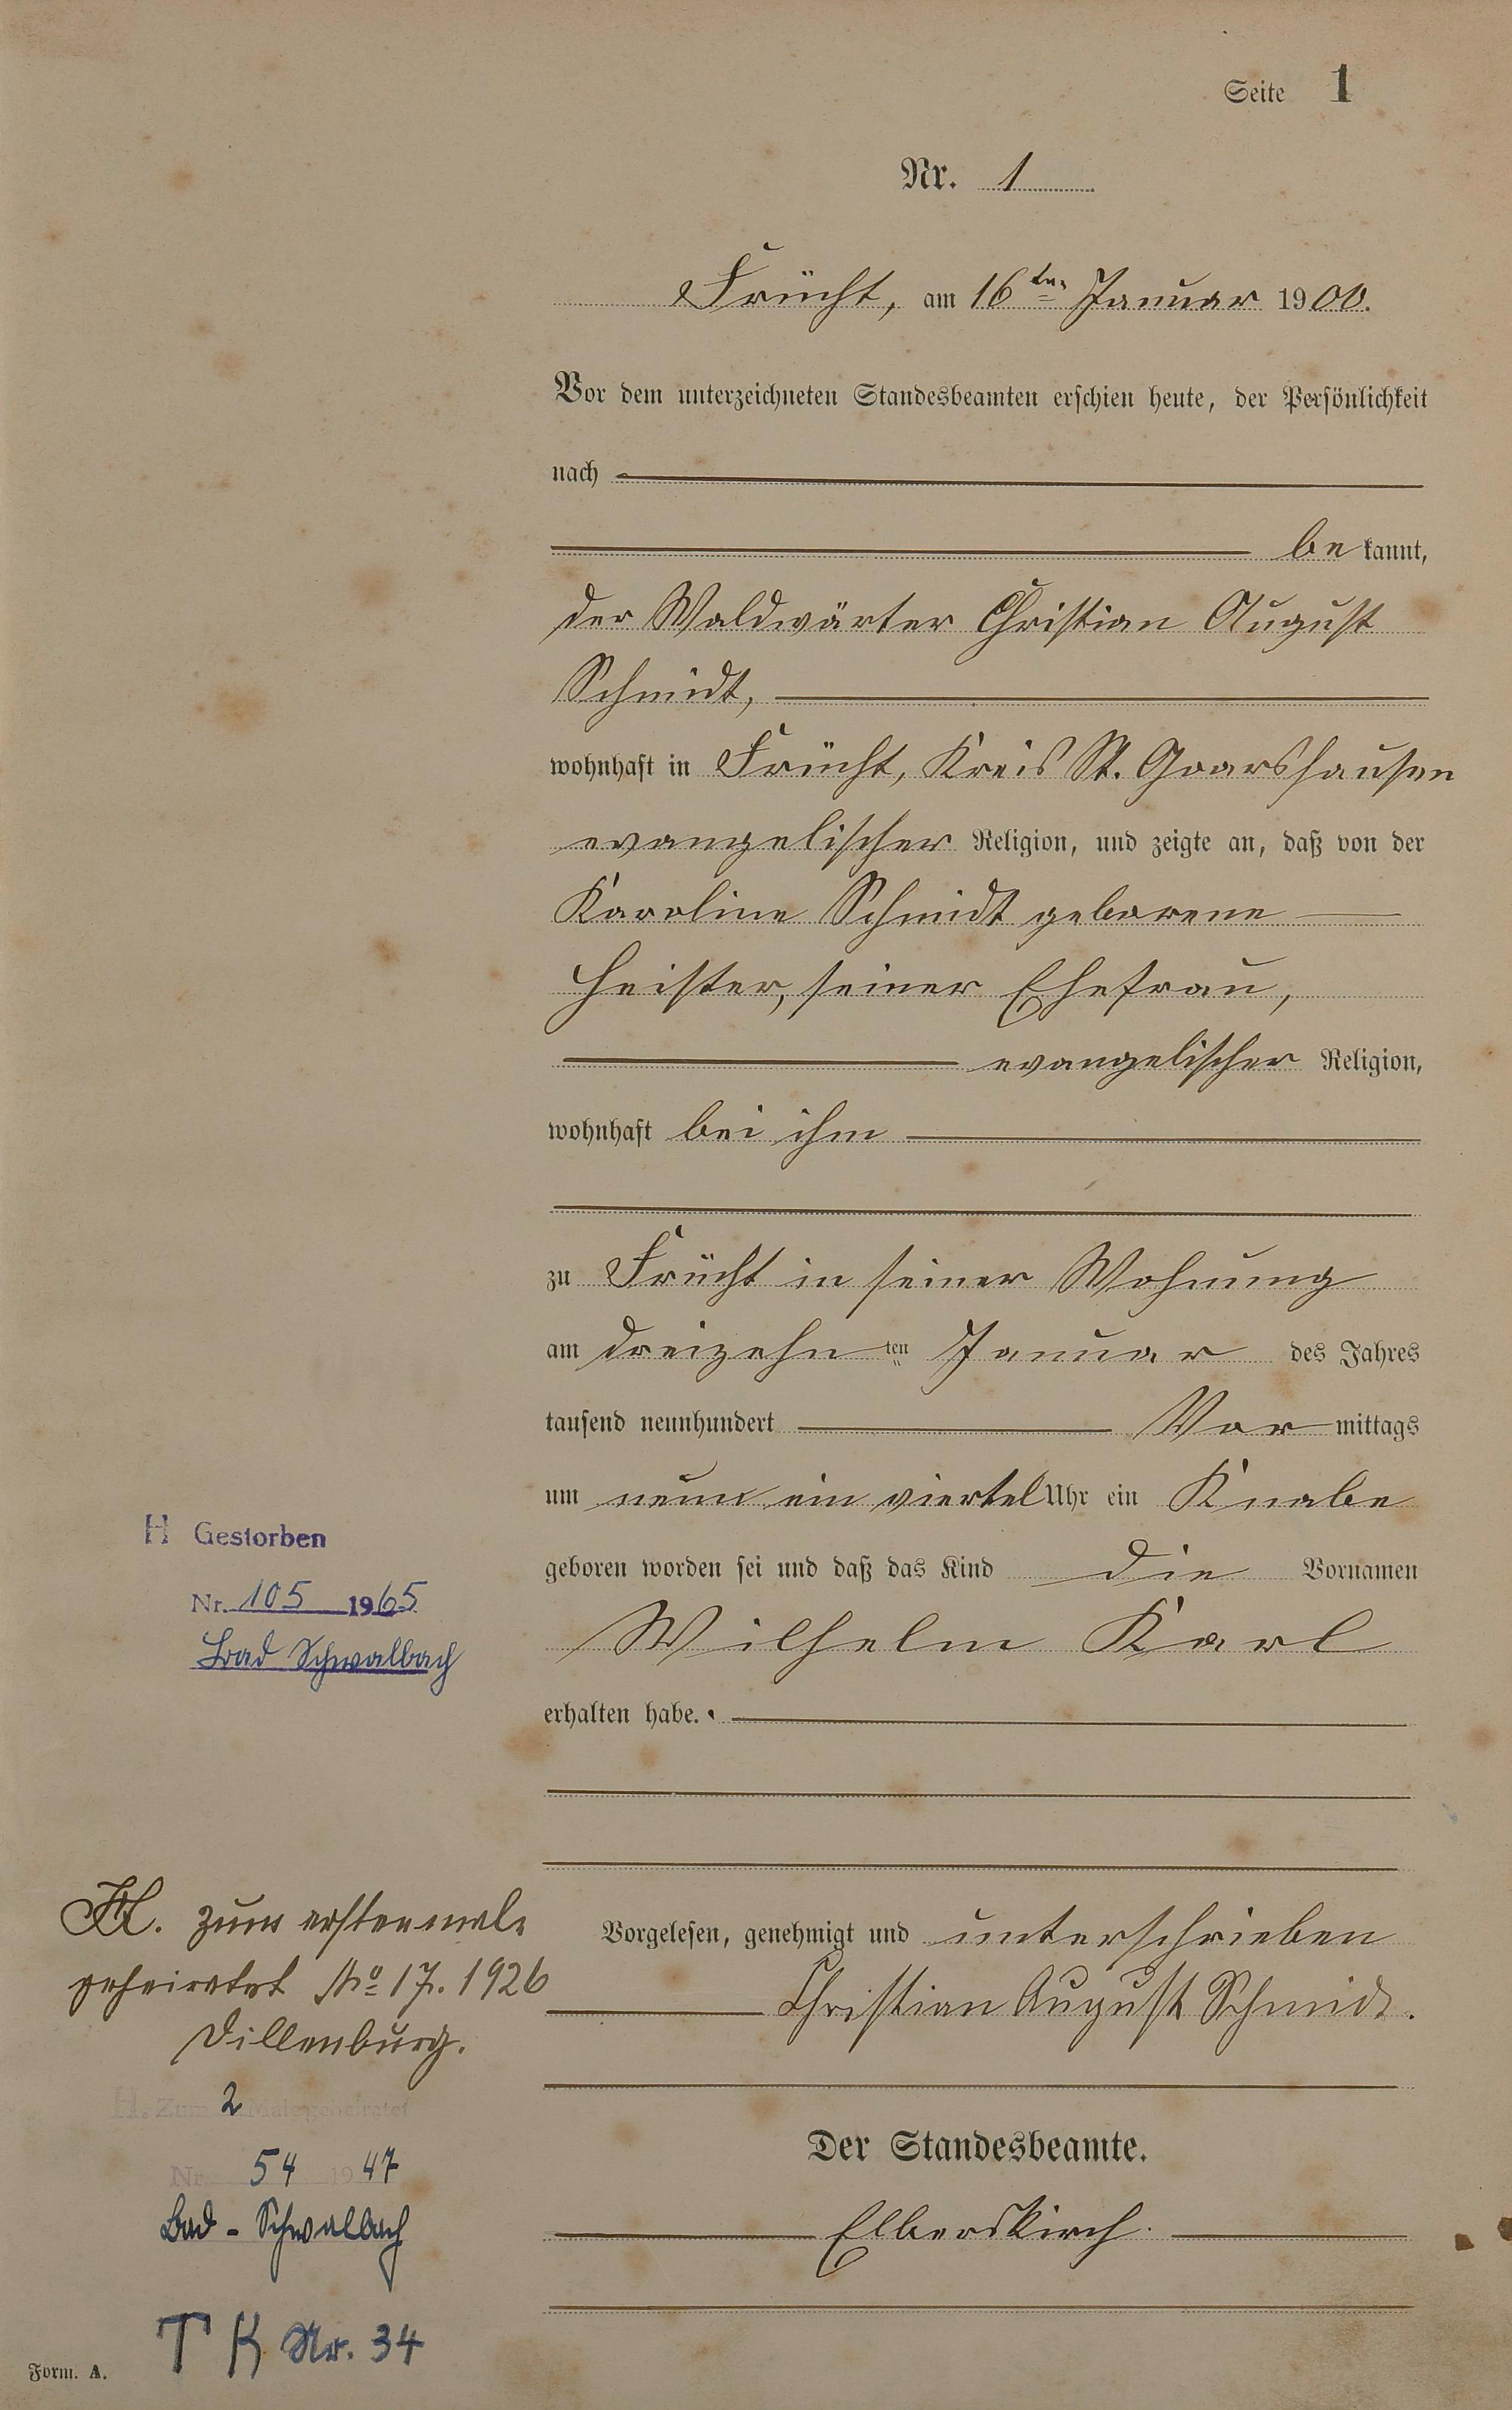 Seite 1
Nr. 1
Frücht, am 16ten Januar 1900.
Vor dem unterzeichneten Standesbeamten erschien heute, der Persönlichkeit
nach
be kannt,
der Waldwärter Christian August
Schmidt,
wohnhaft in Frücht, Kreis St. Goarshausen
evangelischer Religion, und zeigte an, daß von der
Karoline Schmidt geborene
Heister, seiner Ehefrau,
evangelischer Religion,
wohnhaft bei ihm
zu Frücht in seiner Wohnung
am dreizehn ten Januar des Jahres
tausend neunhundert Vor mittags
um neun ein viertel Uhr ein Knabe
geboren worden sei und daß das Kind die Vornamen
Wilhelm Karl
erhalten habe.
Vorgelesen, genehmigt und unterschrieben
Christian August Schmidt.
Der Standesbeamte.
Elberskirch.
H Gestorben
Nr. 105 1965
Bad Schwalbach
H. zum erstenmale
geheiratet No 17. 1926
Dillenburg.
H. Zum 2 Male geheiratet
Nr. 54 1947
Bad - Schwalbach
T K Nr. 34
Form. A.